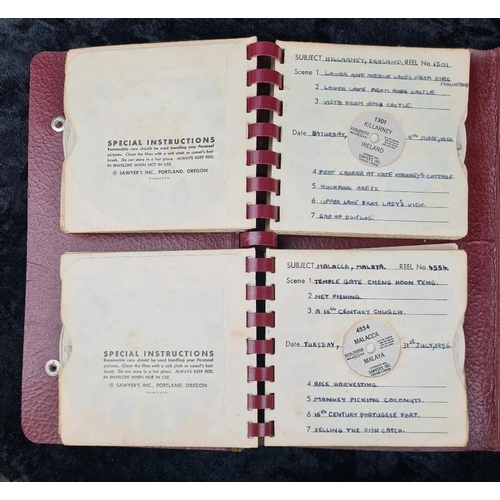 SPECIAL INSTRUCTIONS
Reasonable care should be used handling your Personal
pictures. Clean the films with a soft cloth or camel's hair
brush. Do not store in a hot place. ALWAYS KEEP REEL
IN ENVELOPE WHEN NOT IN USE.
® SAWYER'S INC., PORTLAND, OREGON
SUBJECT KILLARNEY, EIRELAND. REEL No. 1301
Scene 1. LOWER AND MIDDLE LAKES FROM
2. LOWER LAKE FROM ROSS CASTLE.
3. VISTA FROM ROSS CASTLE.
1301
KILLARNEY
IRELAND
Date SATURDAY, 9th JUNE,
4. PEAT CARRIER AT KATE KEARNEY'S COTTAGE
5. MUCKROSS ABBEY.
6. UPPER LAKE FROM LADY'S VIEW.
7. GAP OF DUNLOE.
SPECIAL INSTRUCTIONS
Reasonable care should be used handling your Personal
pictures. Clean the films with a soft cloth or camel's hair
brush. Do not store in a hot place. ALWAYS KEEP REEL
IN ENVELOPE WHEN NOT IN USE.
® SAWYER'S INC., PORTLAND, OREGON
SUBJECT MALACCA, MALAYA REEL No. 4554
Scene 1. TEMPLE GATE CHENG HOON TENG.
2. NET FISHING.
3. A 16th CENTURY CHURCH.
4554
MALACCA
MALAYA
SAWYER'S INC
Date TUESDAY, 31st JULY, 1956.
4. RICE HARVESTING.
5. MONKEY PICKING COCONUTS.
6. 16th CENTURY PORTUGESE FORT.
7. SELLING THE FISH CATCH.